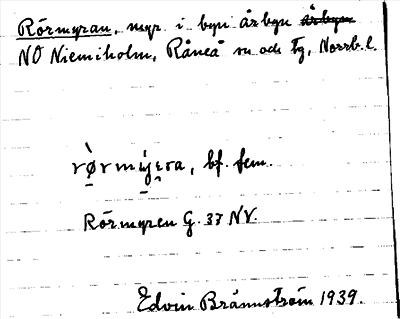 Rörmyran, myr i byn Årbyn
NO Niemiholm, Råneå sn och tg, Norrb. l.
rö̀rmýɛra, bf. fem.
Rörmyren G. 37 NV.
Edvin Brännström 1939.